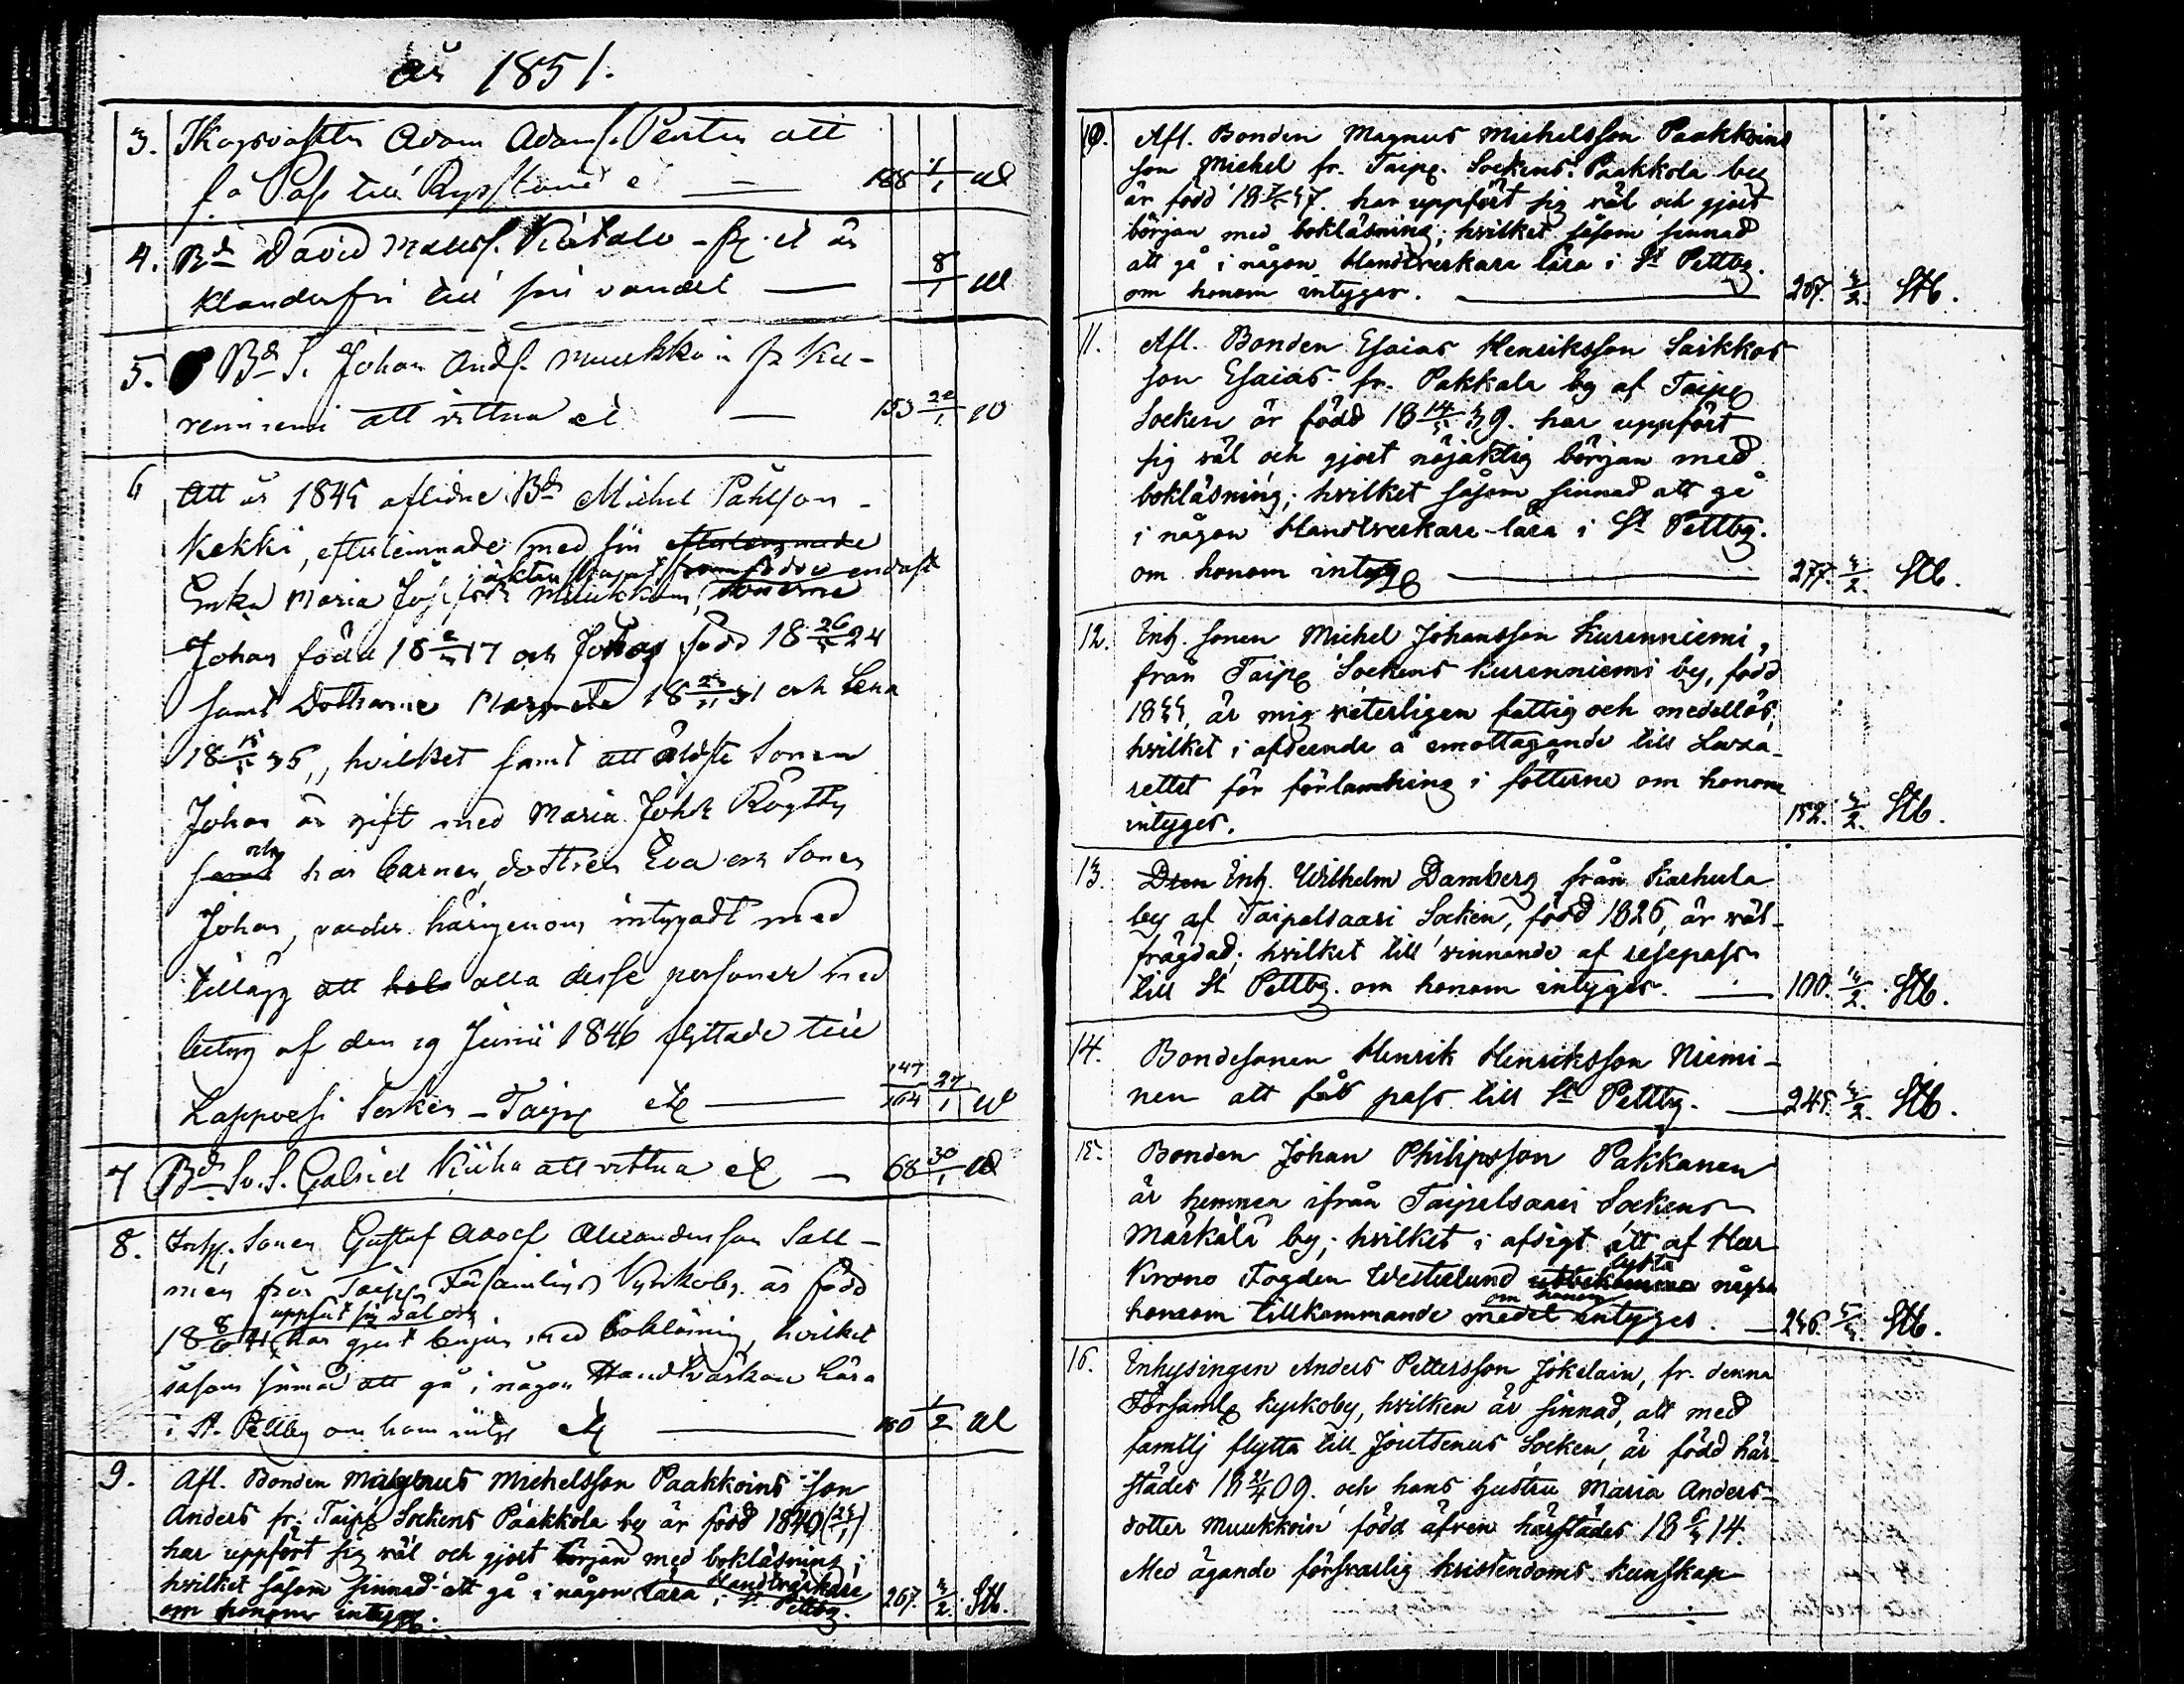 år 1851.
3. Adam Adamss. Penten att
få Pass till Ryssland 188 1/1
4. Bd David Matss. är
klanderfri till sin vandel — 8/1
5. Bd S. Johan Ands. Muukkoin fr Ku-
renniemi att vittna 153 22/1
6 Att år 1845 aflidne Bd Michel Påhlson
Kekki, efterlemnade med sin efterlemnade
Enka Maria född Muukkoin, sönerne endast
Johan född 18 17 och född 18 26 24
samt Döttrarne Margareta 18 31 och Lena
18 36, hvilket samt att äldste Sonen
Johan är gift med Maria Johdr
samt och har barnen, dottren Eva och Sonen
Johan, varder härigenom intygadt med
tillägg att hela alla desse personer med
betyg af den 19 Junii 1846 flyttade till
Lappvesi Socken – Taip 147/164 27/1
7 Bd So. S. Gabriel Kiiha att vittna — 68 30/1
8. Inhy. Sonen Gustaf Adolf Alexandersson Sall-
men från Taip. Församlings Kyrkoby är född
uppfört sig väl och
18 8/6 41 har gjort början med bokläsning, hvilket
såsom sinnad att gå i någon Handtvärkare Lära
i St. Pettbg om honom intyg 180 1/2
9. Afl. Bonden Magnus Michelsson Paakkoins son
Anders fr. Taip. Sockens Paakkola by är född 1840 (25/1)
har uppfört sig väl och gjort början med bokläsning;
hvilket såsom sinnad att gå i någon Handtvärkare
lära i St. Pettbg.
om honom intyges. 267. 3/2. Stb.
10. Afl. Bonden Magnus Michelsson Paakkoins
son Michel fr. Taip. Sockens Paakkola by
är född 18 47. har uppfört sig väl och gjort
början med bokläsning; hvilket såsom sinnad
att gå i någon Handtverkare lära i St Pettbg.
om honom intyges. — 267. 3/2. Stb.
11. Afl. Bonden Esaias Henriksson Saikkos
son Esaias fr. Pakkala by af Taip
Socken är född 18 14 39. har uppfört
sig väl och gjort nöjaktig början med
bokläsning; hvilket såsom sinnad att gå
i någon Handtverkare-lära i St Pettbg.
om honom intyg — 277. 3/2. Stb.
12. Inh. sonen Michel Johansson Kurenniemi,
från Taip Sockens Kurenniemi by, född
1844, är mig veterligen fattig och medellös;
hvilket i afseende å emottagande till Laza-
rettet för förlamning i fötterne om honom
intyges. 152. 3/2. Stb.
13. Dren Inh. Wilhelm Damberg från Karhula
by af Taipalsaari Socken, född 1826, är väl-
frägdad; hvilket till vinnande af resepass
till St Pettbg. om honom intyges. — 100. 3/2. Stb.
14. Bondesonen Henrik Henriksson Niemi-
nen att få pass till St Pettbg. — 245. 3/2. Stb.
15. Bonden Johan Philipsson Pakkanen
är hemma ifrån Taipelsaari Sockens
Märkälä by; hvilket i afsigt att af Herr
Krono Fogden Westerlund utbekomma lyfta några
om honom
honom tillkommande medel intyges. — 246. Stb.
16. Inhysingen Anders Pettersson Jokelain, fr. denna
Församl. kyrkoby, hvilken är sinnad, att med
familj flytta till Joutsenus Socken, är född här-
städes 18 21/4 09. och hans hustru Maria Anders-
dotter Muukkoin född äfven härstädes 18 14.
Med ägande försvarlig kristendoms kunskap